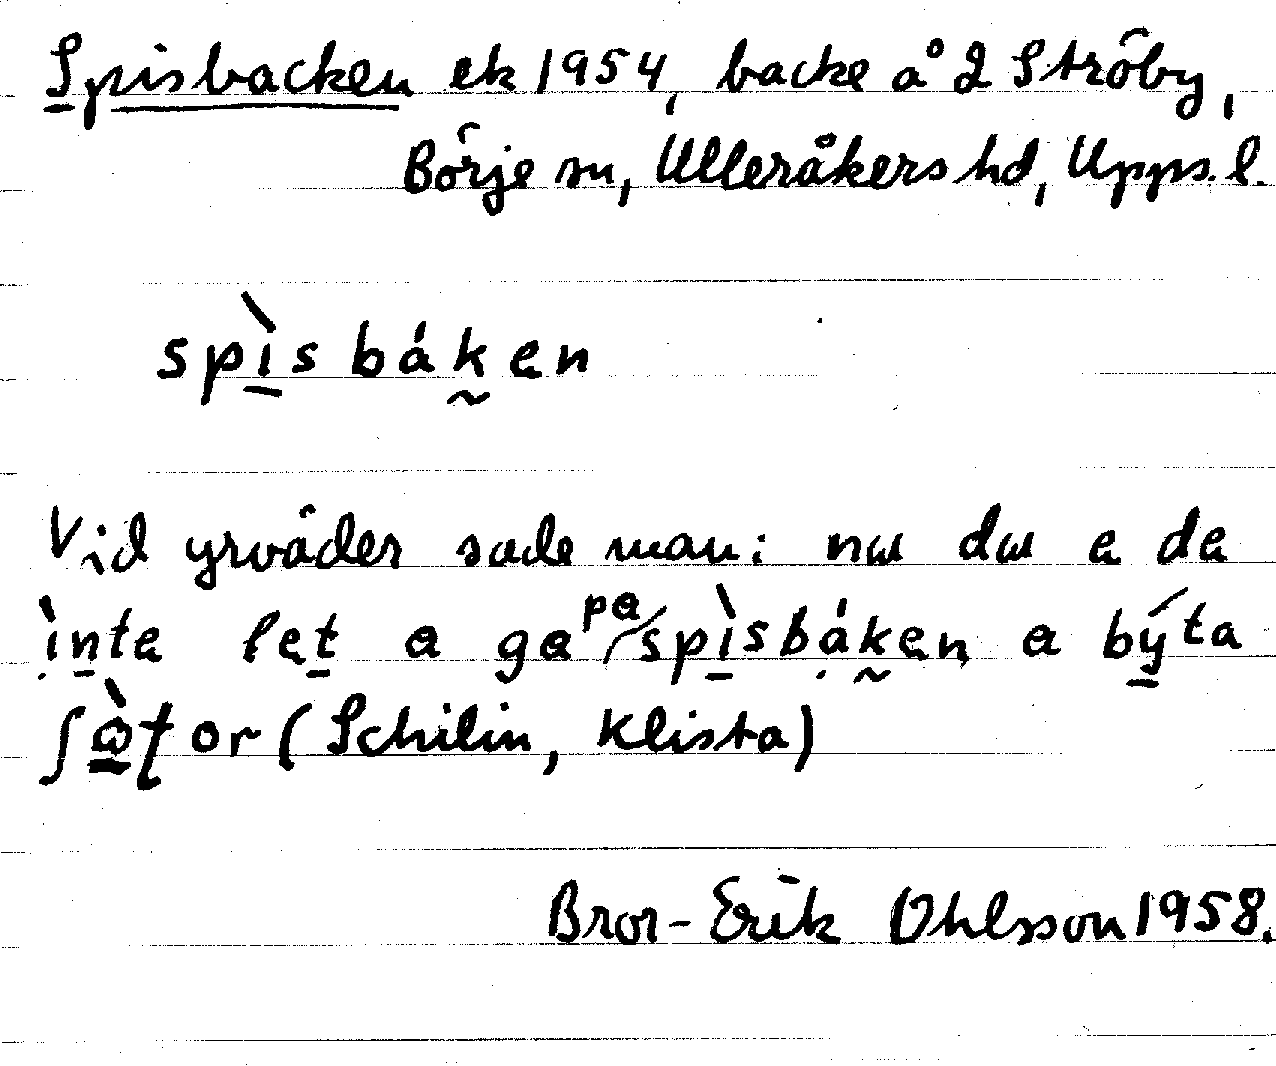 Spisbacken ek 1954, backe å 2 Ströby,
Börje sn, Ulleråkers hd, Upps. l.
spìsbáken
Vid yrväder sade man: nɯ dɯ e de
ìnte let a ga pa spìsbáken a býta
ʃò̱ʈor (Schilin, Klista)
Bror-Erik Ohlsson 1958.